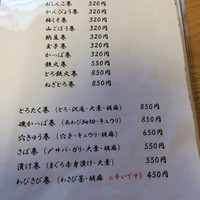 おしんこ巻 320円
かんぴょう巻 320円
梅しそ巻 320円
山ごぼう巻 320円
納豆巻 320円
玉子巻 320円
かっぱ巻 320円
鉄火巻 550円
とろ鉄火巻 850円
ねぎとろ巻 850円
とろたく巻 (とろ・沢庵・大葉・胡麻) 850円
磯かっぱ巻 キュウリ) 850円
穴きゅう巻 (穴子・キュウリ・胡麻) 650円
さば巻 (〆サバ・ガリ・大葉・胡麻) 550円
漬け巻 (まぐろ赤身漬け・大葉) 550円
わさび巻 (わさび茎・胡麻 ※辛いです) 450円